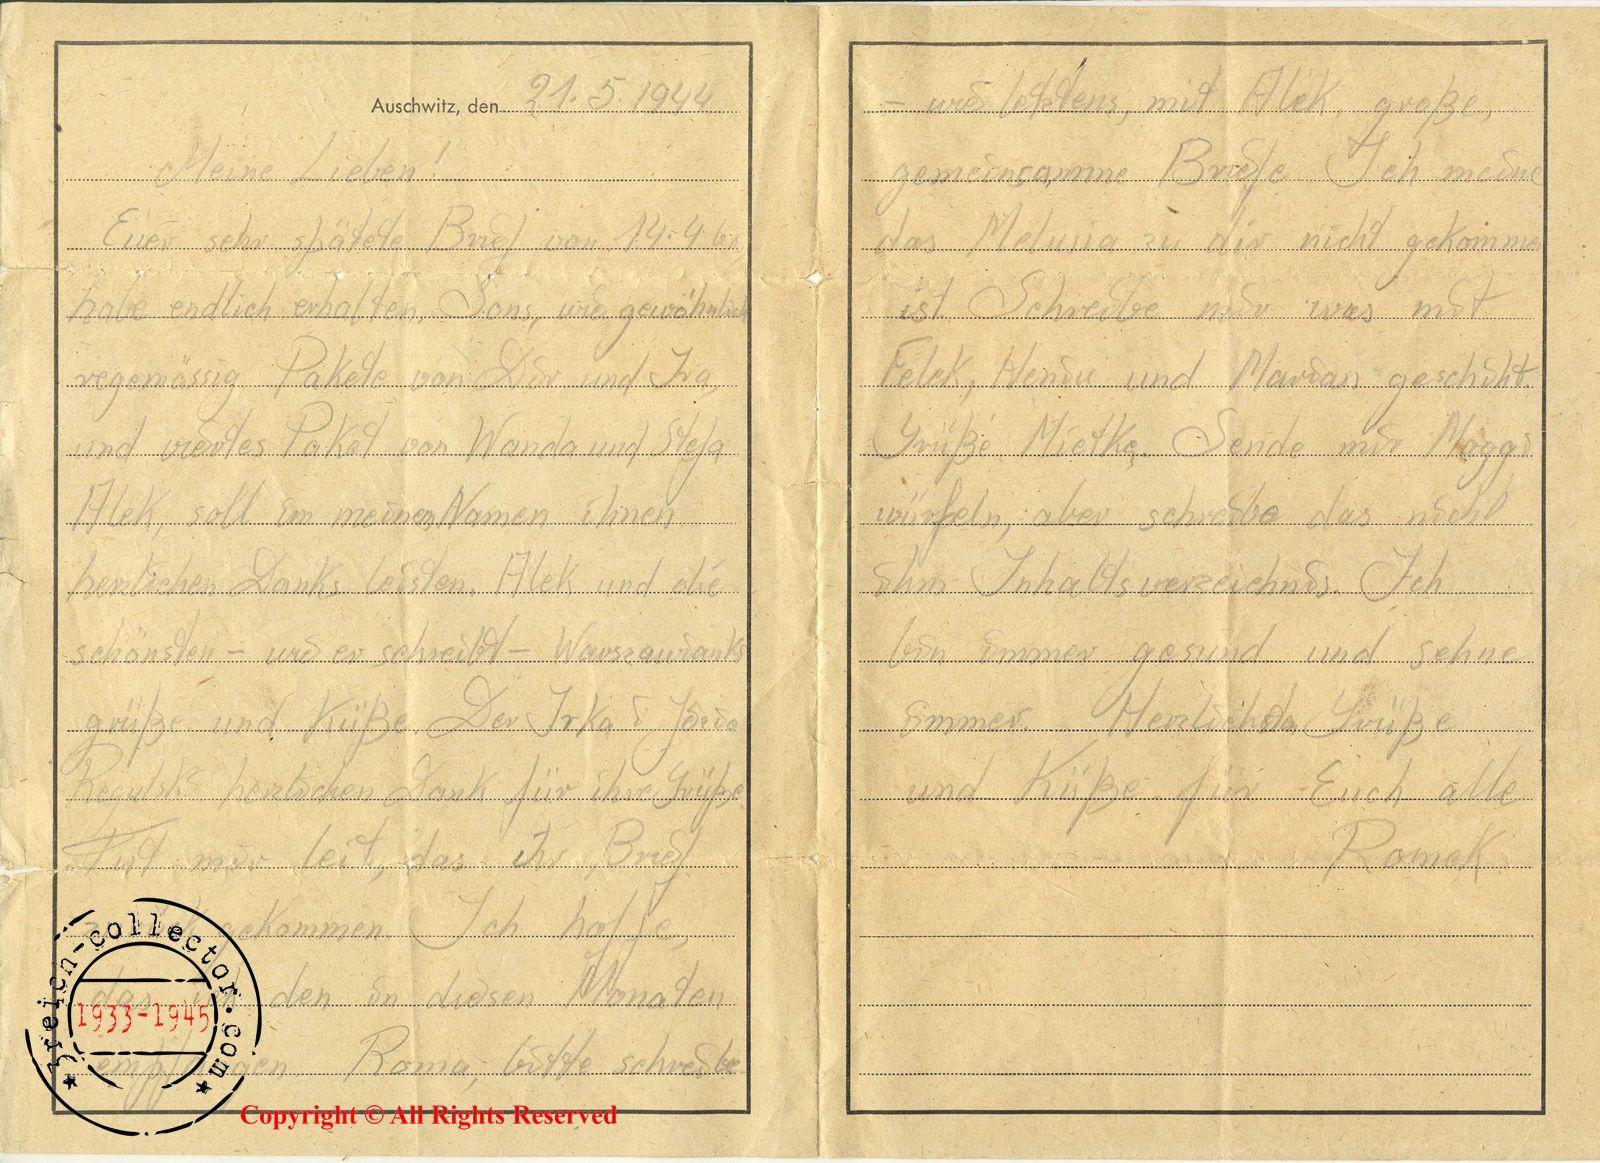 Auschwitz, den 21.5.1944
Meine Lieben!
Euer sehr spätete Brief von 14.4.
habe endlich erhalten. Sons, wie gewöhnlich
regemässig Pakete von Dir und Ira,
und viertes Paket von Wanda und Stefa
Alek, soll im meinen Namen ihnen
herzlichen Danks leisten. Alek und die
schönsten – wie er schreibt –
grüße und Küße. Der Irka i Józia
Regulski herzlichen Dank für ihre Grüße
Tut mir leit, das ihr Brief
zurück gekommen. Ich hoffe,
das ich den in diesen Monaten
empfangen. Roma, bitte schreibe
– wie letztens, mit Alek, große,
gemeinsamme Briefe Ich meine
das Melusia zu dir nicht gekommen
ist. Schreibe mir was mit
Felek, Heniu und Marian geschiht.
Grüße Mietka. Sende mir Maggi
würfeln, aber schreibe das nicht
ihm Inhaltsverzeichnis. Ich
bin immer gesund und sehne
immer. Grüße
und Küße für Euch alle
Romek
3reich-collector.com
1933-1945
Copyright © All Rights Reserved